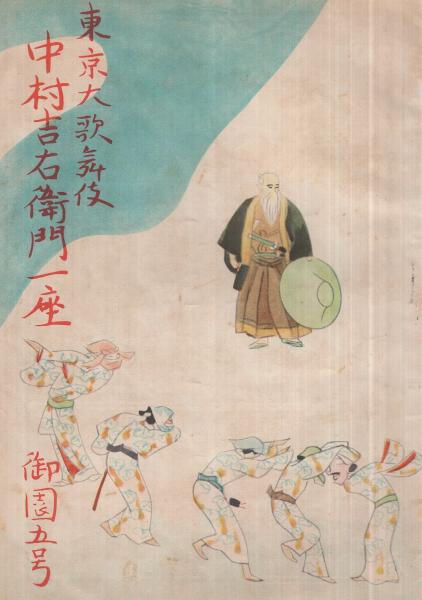 東京大歌舞伎
中村吉右衛門一座
御園五号